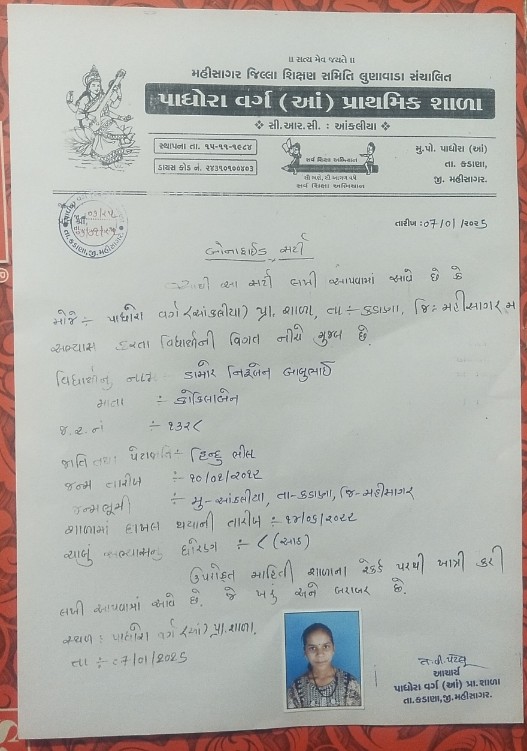 ॥ સત્ય મેવ જયતે ॥
મહીસાગર જિલ્લા શિક્ષણ સમિતિ લુણાવાડા સંચાલિત
પાધોરા વર્ગ (આં) પ્રાથમિક શાળા
❖ સી.આર.સી. : આંકલીયા ❖
સ્થાપના તા. ૧૫-૧૧-૧૯૮૪
ડાયસ કોડ નં. ૨૪૩૧૦૧૦૦૪૦૩
સર્વ શિક્ષા અભિયાન
મુ.પો. પાધોરા (આં)
તા. કડાણા,
જી. મહીસાગર.
તા.કડાણા,જી.મહીસાગર.
તારીખ :07/01/૨૦૨૬
બોનાફાઈડ સર્ટી
આથી આ સર્ટી લખી આપવામાં આવે છે કે
મોજે ÷ પાધોરા વર્ગ(આંકલીયા) પ્રા. શાળા, તા ÷ કડાણા, જિ: મહીસાગર માં
અભ્યાસ કરતા વિદ્યાર્થીની વિગત નીચે મુજબ છે.
વિદ્યાર્થીનું નામ ÷ ડામોર નિરૂબેન બાબુભાઈ
માતા ÷ કોકિલાબેન
જ.ર.નં ÷ ૧૩૨૮
જાતિ તથા પેટાજાતિ÷ હિન્દુ ભીલ
જન્મ તારીખ ÷ ૧૦/૦૧/૨૦૧૨
જન્મભૂમી ÷ મુ-આંકલીયા, તા-કડાણા, જિ-મહીસાગર
શાળામાં દાખલ થયાની તારીખ ÷ ૧૪/૦૬/૨૦૨૨
ચાલુ અભ્યાસનું ધોરણ ÷ ૮ (આઠ)
ઉપરોક્ત માહિતી શાળાના રેકર્ડ પરથી ખાત્રી કરી
લખી આપવામાં આવે છે. જે ખરું અને બરાબર છે.
સ્થળ : પાધોરા વર્ગ(આં) પ્રા.શાળા.
તા ÷ 07/01/૨૦૨૬
આચાર્ય
પાધોરા વર્ગ (આં) પ્રા.શાળા
તા.કડાણા,જી.મહીસાગર.